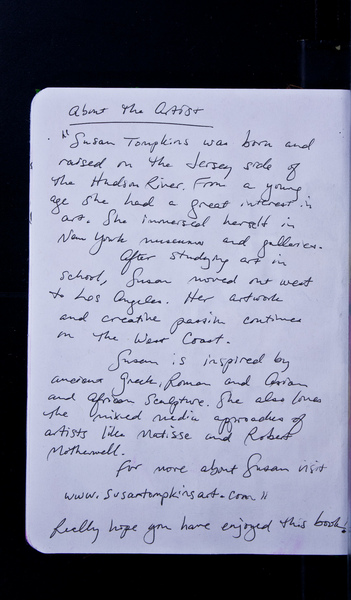 About the Artist
"Susan Tompkins was born and
raised on the Jersey side of
the Hudson River. From a young
age she had a great interest in
art. She immersed herself in
New York museums and galleries.
After studying art in
school, Susan moved out west
to Los Angeles. Her artwork
and creative passion continues
on the West Coast.
Susan is inspired by
ancient Greek, Roman and Asian
and African Sculpture. She also loves
the mixed media approaches of
artists like Matisse and Robert
Motherwell.
For more about Susan visit
www.susantompkinsart.com"
Really hope you have enjoyed this book!